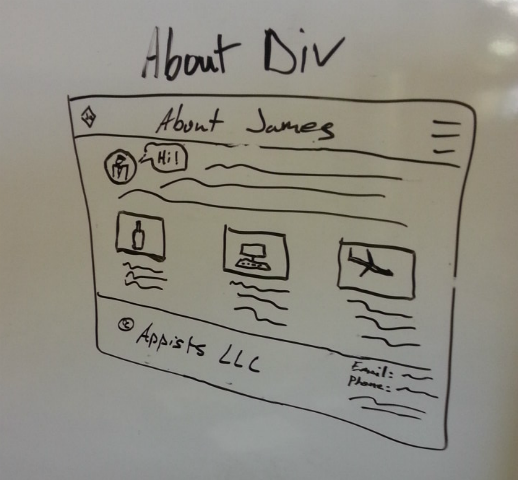 About Div
About James
Hi!
© Appists LLC
Email:
Phone: